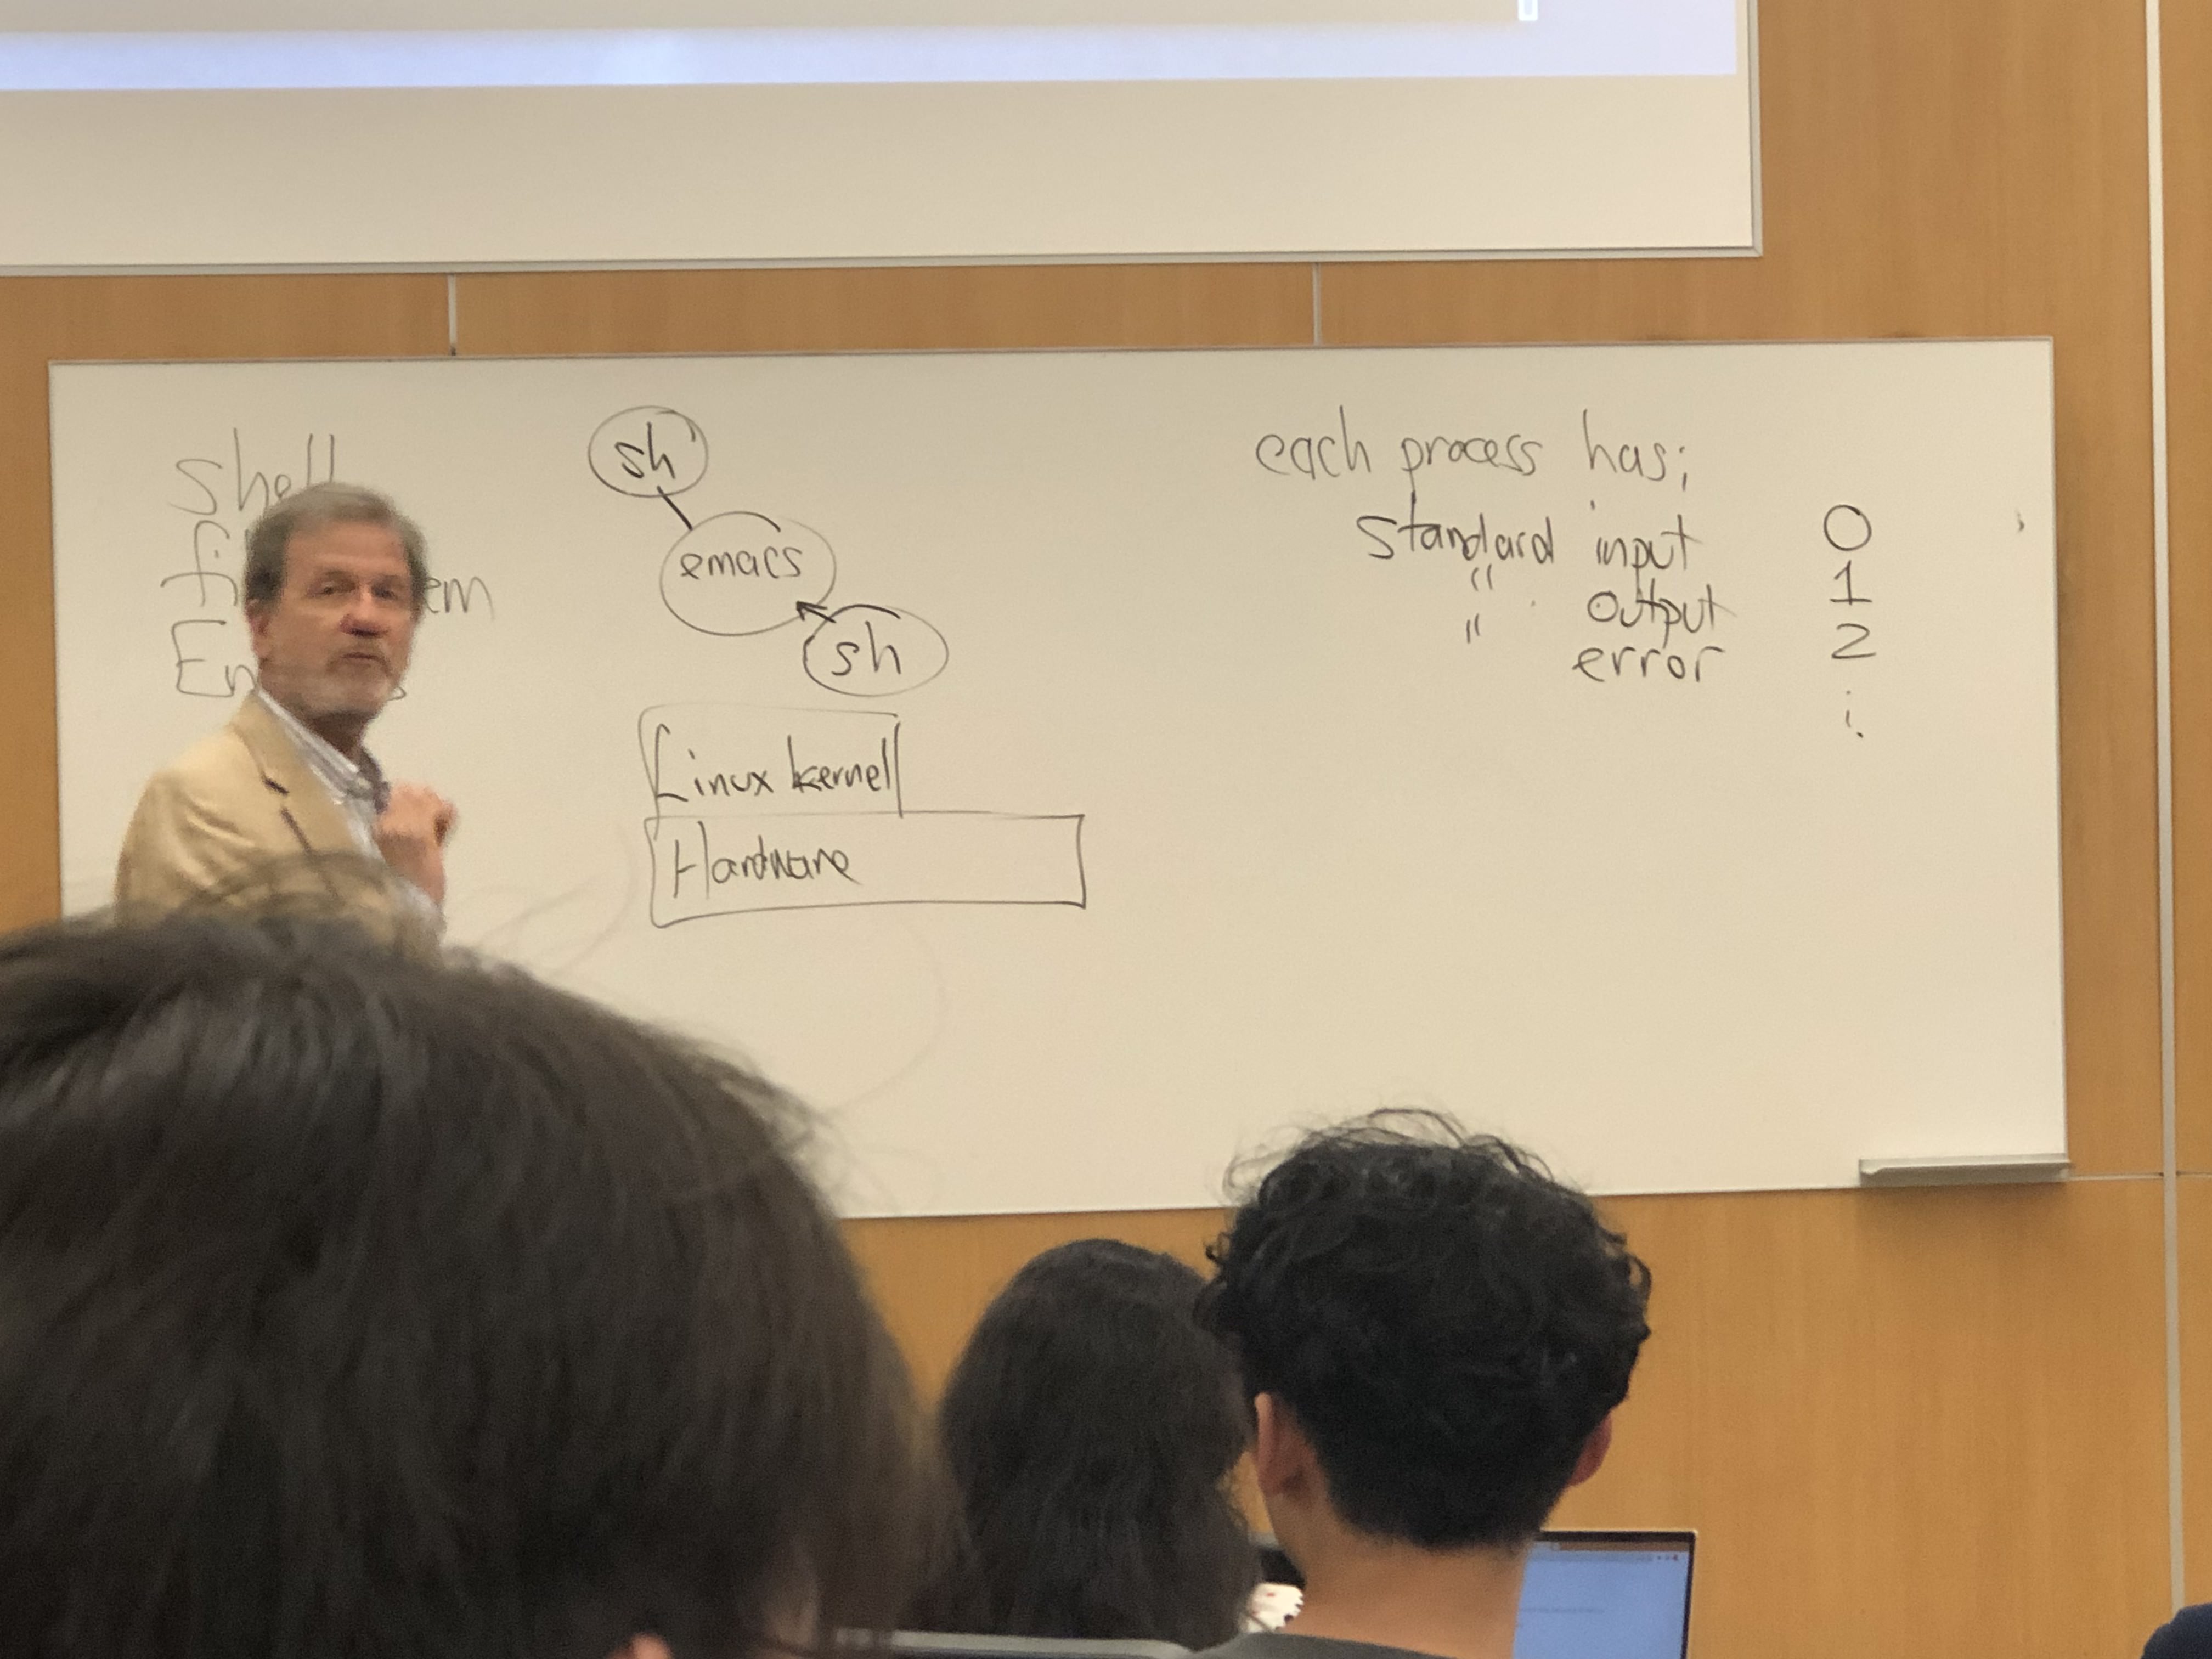 shell
sh
emacs
sh
Linux kernel
Hardware
each process has;
standard input 0
" output 1
" error 2